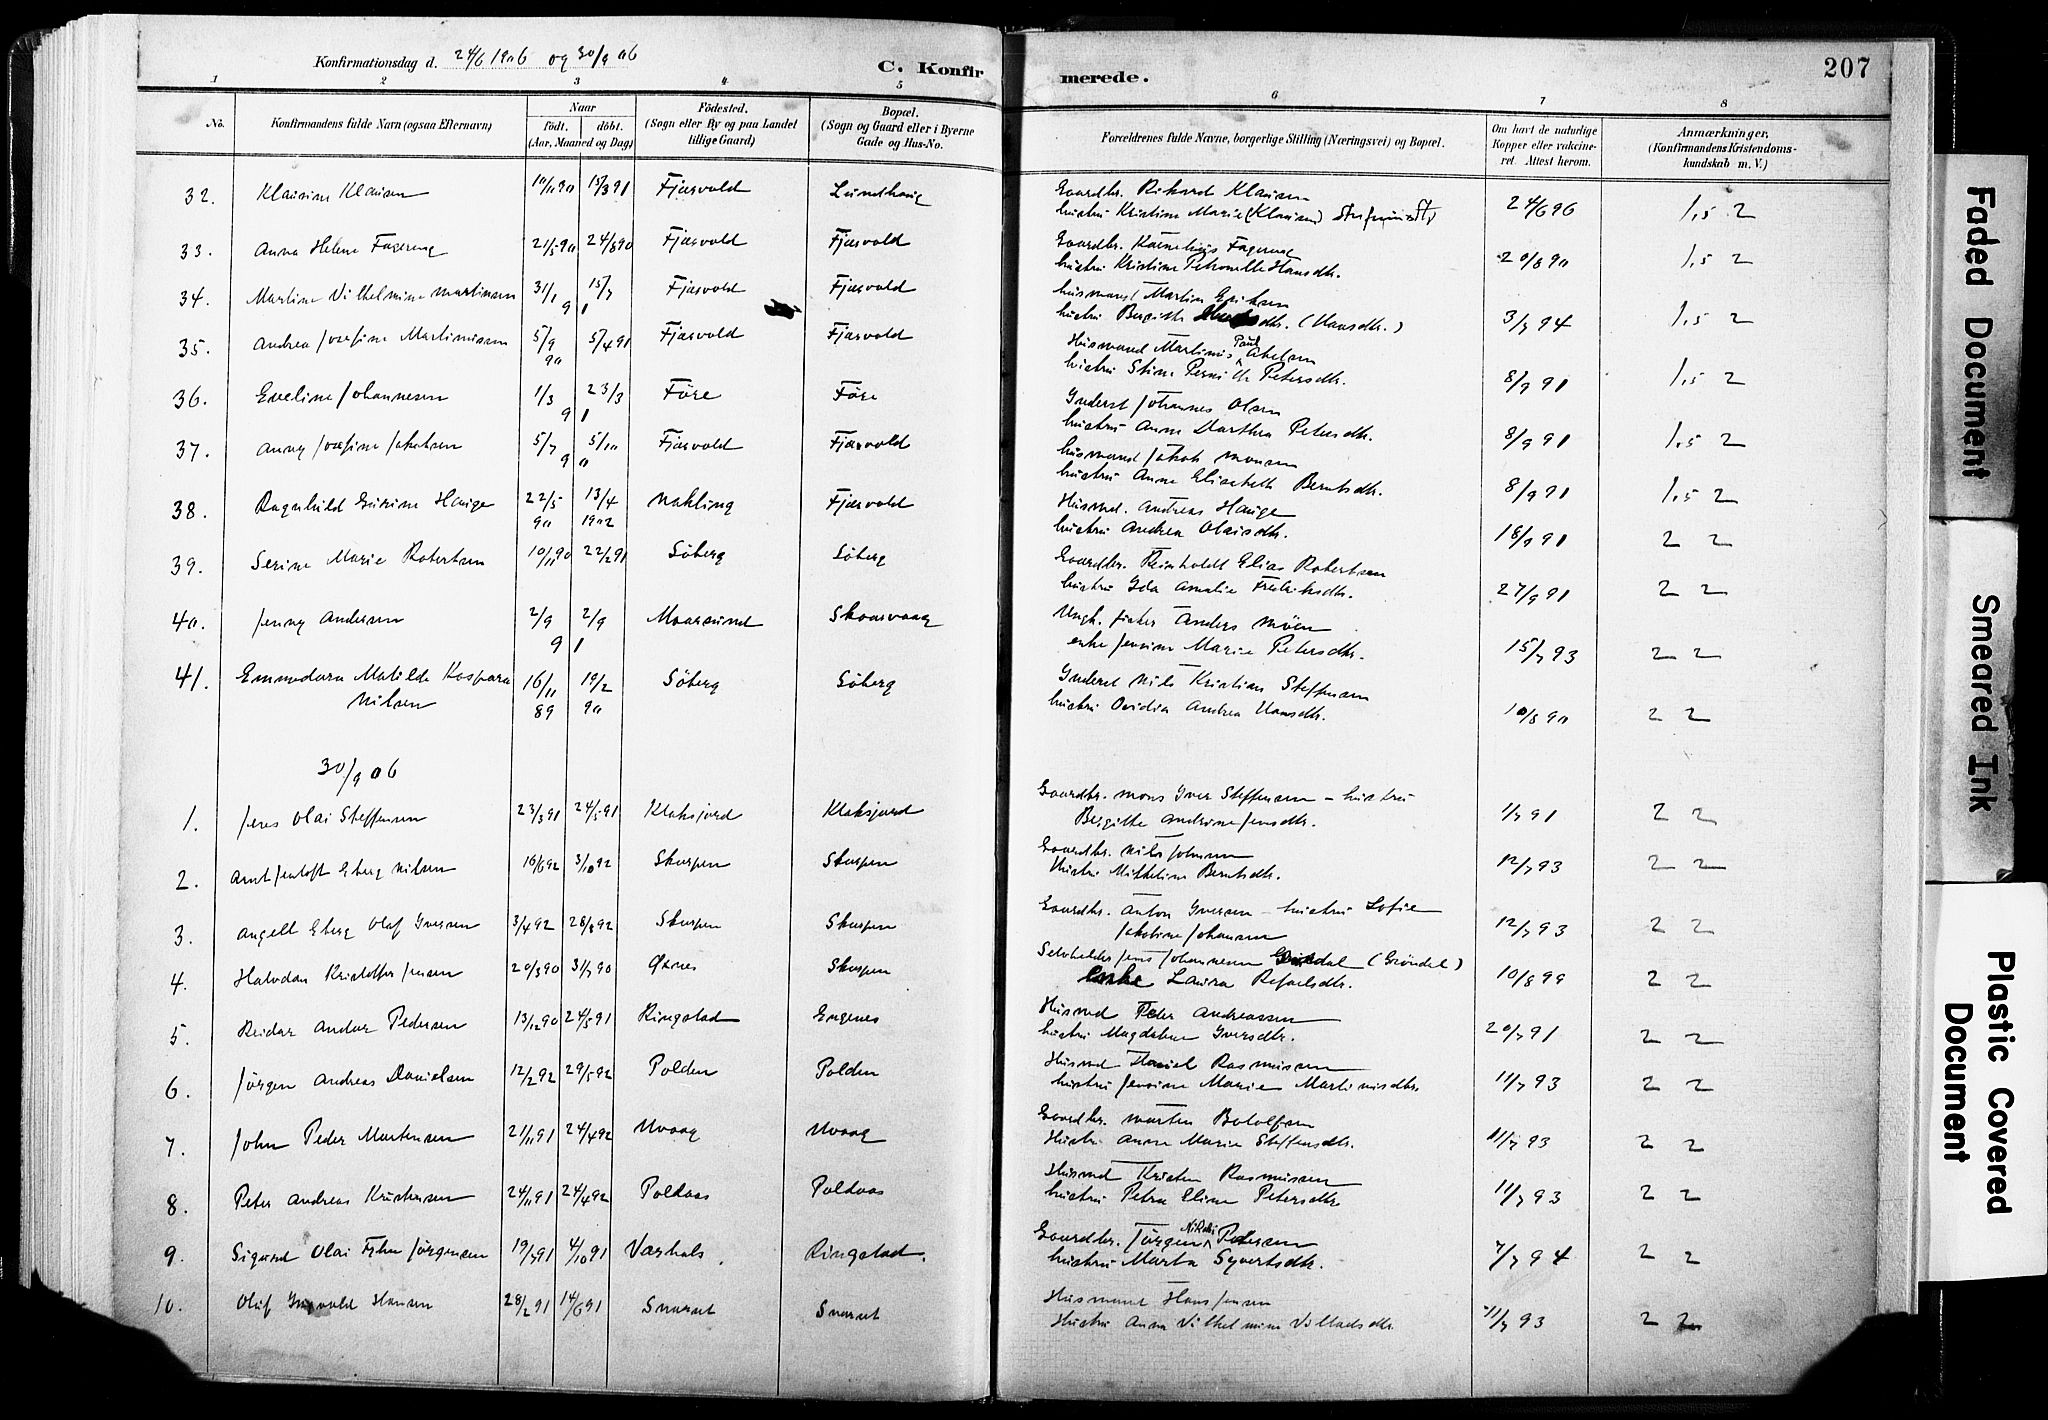 Konfirmationsdag d. 24/6 1906 og 30/9 06
C. Konfirmerede.
207
1 2 3 4 5 6 7 8
No.
Konfirmandens fulde Navn (ogsaa Efternavn)
Naar
födt. döbt.
(Aar, Maaned og Dag)
Födested.
(Sogn eller By og paa Landet
tillige Gaard)
Bopæl.
(Sogn og Gaard eller i Byerne
Gade og Hus-No.
Forældrenes fulde Navne, borgerlige Stilling (Næringsvei) og Bopæl.
Om havt de naturlige
Kopper eller vakcine-
ret. Attest herom.
Anmærkninger,
(Konfirmandens Kristendoms-
kundskab m. V.)
32. Klausine Klausen 10/11 90 15/3 91 Fjærvold Lundhaug Gaardbr. Rikard Klausen
hustru Kristine Marie (Klausen) 24/6 96 1,5 2
33. Anna Helene Fagereng 21/5 90 24/8 90 Fjærvold Fjærvold Gaardbr. Kornelius Fagereng
hustru Kristine Petronelle Hansdtr. 20/8 90 1,5 2
34. Martine Vilhelmine Martinsen 31/1 15/7 91 Fjærvold Fjærvold husmand Martin Eriksen
hustru Bergith dtr. (Hansdtr.) 3/7 94 1,5 2
35. Andrea Josefine Martinissen 5/9 90 5/4 91 Fjærvold Fjærvold Husmand Martinus Paul Abelsen
hustru Stine Petersdtr. 8/9 91 1,5 2
36. Eveline Johannesen 1/3 23/3 91 Føre Føre Inderst Johannes Olsen
hustru Anne Darthea Petersdtr. 8/9 91 1,5 2
37. Anny Josefine Jakobsen 5/7 5/10 90 Fjærvold Fjærvold husmand Jakob Monsen
hustru Anne Elisabeth Berntsdtr. 8/9 91 1,5 2
38. Ragnhild Gurine Hauge 22/5 90 13/4 1902 Makling Fjærvold Husmd. Andreas Hauge
hustru Andrea Olaisdtr. 18/9 91 2 2
39. Serine Marie Robertsen 10/11 90 22/2 91 Søberg Søberg Gaardbr. Reinholdt Elias Robertsen
hustru Ida Amalie Fredriksdtr. 27/9 91 2 2
40. Jenny Andersen 2/9 2/9 91 Maarsund Skaarvaag Ungk. fisker Anders Møen
enke Jensine Marie Petersdtr. 15/7 93 2 2
41. Emmedora Matilde Kaspara
Nilsen 16/11 89 19/2 90 Søberg Søberg Inderst Nils Kristian Steffensen
hustru Ovidia Andrea Hansdtr. 10/8 90 2 2
30/9 06
1. Jens Olai Steffensen 23/3 91 24/5 91 Klaksjord Klaksjord Gaardbr. Mons Iver Steffensen - hustru
Bergitte Andrine Jensdtr. 1/7 91 2 2
2. Arnt Jentoft Eberg Nilsen 16/6 92 3/10 92 Skarpen Skarpen Gaardbr. Nils Johnsen
Hustru Mikkeline Berntsdtr. 12/7 93 2 2
3. Angell Eberg Olaf Iversen 3/4 92 28/8 92 Skarpen Skarpen Gaardbr. Anton Iversen - hustru Sofie
Jakobine Johansen 12/7 93 2 2
4. Halvdan Kristoffer Jensen 20/3 90 31/7 90 Øksnes Skarpen Selvholder Jens Johannesen (Gröndal)
enke Laura Rafaelsdtr. 10/8 99 2 2
5. Reidar Andor Pedersen 13/12 90 24/5 91 Ringstad Engenes Husmd Peter Andreassen
hustru Magdalene Iversdtr. 20/7 91 2 2
6. Jørgen Andreas Danielsen 12/2 92 29/5 92 Polden Polden Husmd Daniel Rasmussen
hustru Jensine Marie Martinisdtr. 11/7 93 2 2
7. John Peder Martensen 21/11 91 24/4 92 Uvaag Uvaag Gaardbr. Morten Botolfsen
Hustru Anne Marie Steffensdtr. 11/7 93 2 2
8. Peter Andreas Kristensen 24/11 91 24/4 92 Poldaas Poldaas Husmd Kristen Rasmussen
hustru Petra Eline Petersdtr 11/7 93 2 2
9. Sigurd Olai Jørgensen 19/7 91 4/10 91 Værhals Ringstad. Gaardbr. Jörgen Nikolai Petersen
hustru Marta Syvertsdtr. 7/7 94 2 2
10. Oluf Ingvald Hansen 28/2 91 14/6 91 Snarset Snarset Husmand Hans Jensen
Hustru Anna Vilhelmine Villadsdtr. 11/7 93 2 2
Faded Document
Smeared Ink
Plastic Covered
Document